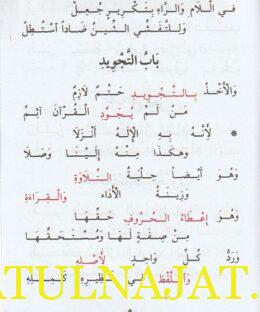 فِي اللَّامِ وَالرَّاءِ بِتَكْرِيرٍ جُعِلْ
وَلِلتَّفَشِّي الشِّينُ ضَاداً اسْتُطِلْ
بَابُ التَّجْوِيدِ
وَالْأَخْذُ بِالتَّجْوِيدِ حَتْمٌ لَازِمُ
مَنْ لَمْ يُجَوِّدِ الْقُرْآنَ آثِمُ
* لِأَنَّهُ بِهِ الْإِلٰهُ أَنْزَلَا
وَهٰكَذَا مِنْهُ إِلَيْنَا وَصَلَا
وَهُوَ أَيْضاً حِلْيَةُ التِّلَاوَةِ
وَزِينَةُ الْأَدَاءِ وَالْقِرَاءَةِ
وَهُوَ إِعْطَاءُ الْحُرُوفِ حَقَّهَا
مِنْ صِفَةٍ لَهَا وَمُسْتَحَقَّهَا
وَرَدُّ كُلِّ وَاحِدٍ لِأَصْلِهِ
وَاللَّفْظُ فِي نَظِيرِهِ كَمِثْلِهِ
ATULNAJAT.